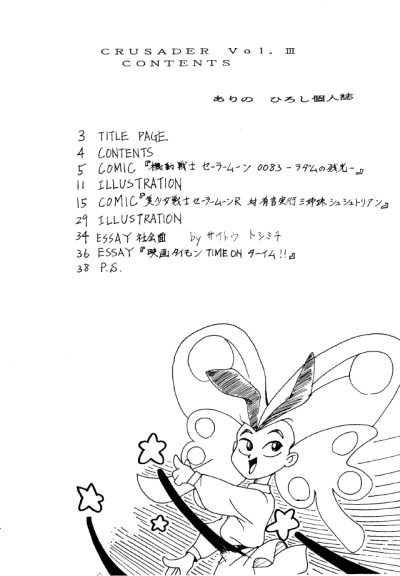 CRUSADER Vol. Ⅲ
CONTENTS
ありの ひろし個人誌
3 TITLE PAGE
4 CONTENTS
5 COMIC『機動戦士セーラームーン 0083 -ラダムの残光-』
11 ILLUSTRATION
15 COMIC『美少女戦士セーラームーンR 対 有言実行三姉妹シュシュトリアン』
29 ILLUSTRATION
34 ESSAY 社会面 by サイトウ トシミチ
36 ESSAY『映画タイモン TIME ON ターイム!!』
38 P.S.